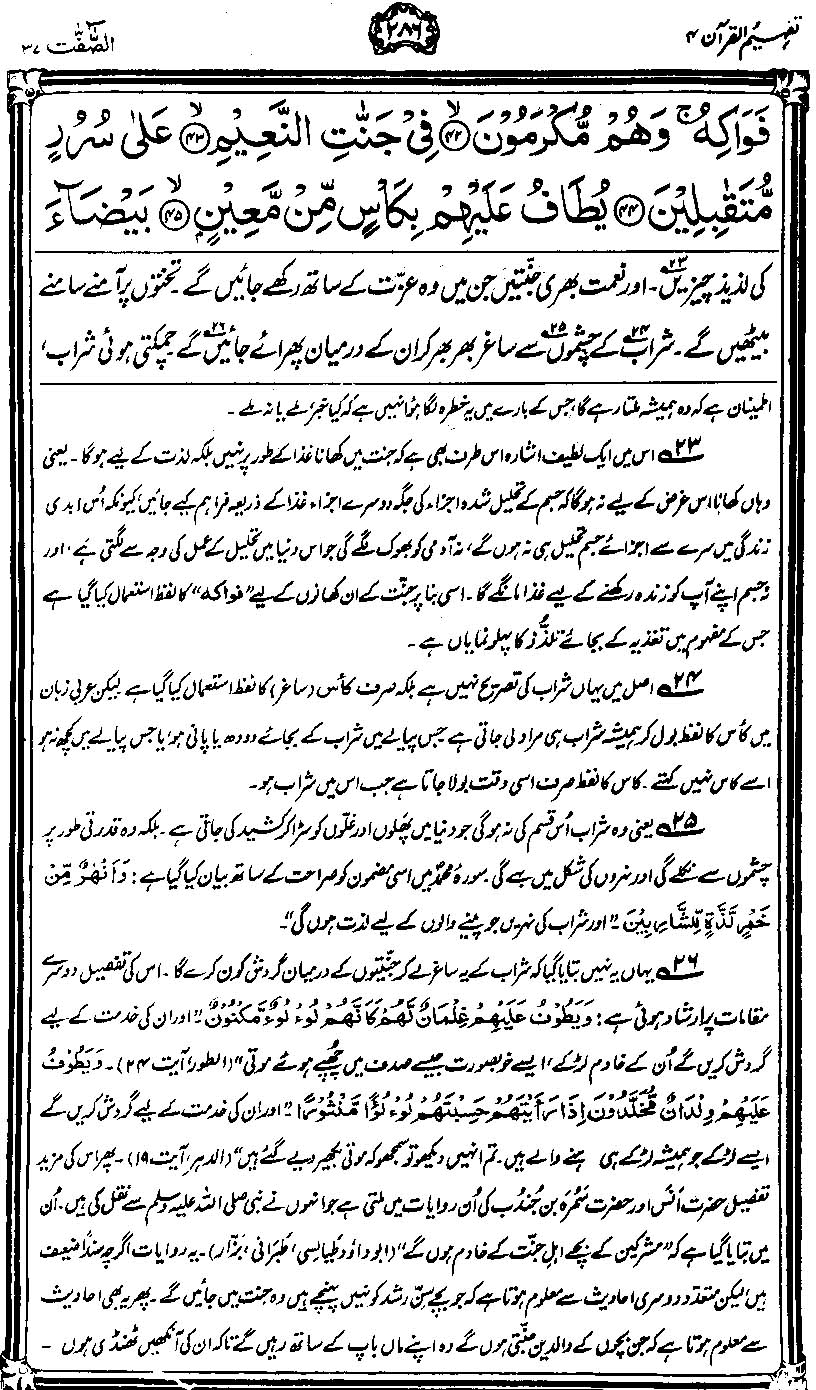 تفہیم القرآن ۴
۲۸۶
الصّٰفّٰت ۳۷
فَوَاكِهُ ۚ وَهُمْ مُّكْرَمُوْنَ ﴿۴۲﴾ فِيْ جَنّٰتِ النَّعِيْمِ ﴿۴۳﴾ عَلٰى سُرُرٍ
مُّتَقٰبِلِيْنَ ﴿۴۴﴾ يُطَافُ عَلَيْهِمْ بِكَاْسٍ مِّنْ مَّعِيْنٍ ﴿۴۵﴾ بَيْضَآءَ
کی لذیذ چیزیں۲۳۔ اور نعمت بھری جنتیں جن میں وہ عزّت کے ساتھ رکھے جائیں گے۔ تختوں پر آمنے سامنے
بیٹھیں گے۔ شراب۲۴ کے چشموں۲۵ سے ساغر بھر بھر کر ان کے درمیان پھرائے جائیں۲۶ گے۔ چمکتی ہوئی شراب،
اطمینان ہے کہ وہ ہمیشہ ملتا رہے گا، جس کے بارے میں یہ خطرہ لگا ہوا نہیں ہے کہ کیا خبر ملے یا نہ ملے۔
۲۳ اس میں ایک لطیف اشارہ اس طرف بھی ہے کہ جنت میں کھانا غذا کے طور پر نہیں بلکہ لذت کے لیے ہوگا۔ یعنی
وہاں کھانا اس غرض کے لیے نہ ہوگا کہ جسم کے تحلیل شدہ اجزاء کی جگہ دوسرے اجزاء غذا کے ذریعہ فراہم کیے جائیں، کیونکہ اُس ابدی
زندگی میں سرے سے اجزائے جسم تحلیل ہی نہ ہوں گے، نہ آدمی کو بھوک لگے گی جو اس دنیا میں تحلیل کے عمل کی وجہ سے لگتی ہے، اور
نہ جسم اپنے آپ کو زندہ رکھنے کے لیے غذا مانگے گا۔ اسی بنا پر جنّت کے ان کھانوں کے لیے "فواکہ" کا لفظ استعمال کیا گیا ہے
جس کے مفہوم میں تغذیہ کے بجائے تلذُّذ کا پہلو نمایاں ہے۔
۲۴ اصل میں یہاں شراب کی تصریح نہیں ہے بلکہ صرف کأس (ساغر) کا لفظ استعمال کیا گیا ہے۔ لیکن عربی زبان
میں کأس کا لفظ بول کر ہمیشہ شراب ہی مراد لی جاتی ہے۔ جس پیالے میں شراب کے بجائے دودھ یا پانی ہو، یا جس پیالے میں کچھ نہ ہو
اسے کاس نہیں کہتے۔ کاس کا لفظ صرف اسی وقت بولا جاتا ہے جب اس میں شراب ہو۔
۲۵ یعنی وہ شراب اُس قسم کی نہ ہوگی جو دنیا میں پھلوں اور غلّوں کو سڑا کر کشید کی جاتی ہے۔ بلکہ وہ قدرتی طور پر
چشموں سے نکلے گی اور نہروں کی شکل میں بہے گی۔ سورۂ محمدؐ میں اسی مضمون کو صراحت کے ساتھ بیان کیا گیا ہے: وَاَنْهٰرٌ مِّنْ
خَمْرٍ لَّذَّةٍ لِّلشّٰرِبِيْنَ "اور شراب کی نہریں جو پینے والوں کے لیے لذت ہوں گی"۔
۲۶ یہاں یہ نہیں بتایا گیا کہ شراب کے یہ ساغر لے کر جنتیوں کے درمیان گردش کون کرے گا۔ اس کی تفصیل دوسرے
مقامات پر ارشاد ہوئی ہے: وَيَطُوْفُ عَلَيْهِمْ غِلْمَانٌ لَّهُمْ كَاَنَّهُمْ لُؤْلُؤٌ مَّكْنُوْنٌ "اور ان کی خدمت کے لیے
گردش کریں گے اُن کے خادم لڑکے، ایسے خوبصورت جیسے صدف میں چھپے ہوئے موتی" (الطور، آیت ۲۴)۔ وَيَطُوْفُ
عَلَيْهِمْ وِلْدَانٌ مُّخَلَّدُوْنَ اِذَا رَاَيْتَهُمْ حَسِبْتَهُمْ لُؤْلُؤًا مَّنْثُوْرًا "اور ان کی خدمت کے لیے گردش کریں گے
ایسے لڑکے جو ہمیشہ لڑکے ہی رہنے والے ہیں۔ تم انہیں دیکھو تو سمجھو کہ موتی بکھیر دیے گئے ہیں" (الدہر، آیت ۱۹)۔ پھر اس کی مزید
تفصیل حضرت انَس اور حضرت سَمُرَہ بن جُندُب کی اُن روایات میں ملتی ہے جو انہوں نے نبی صلی اللہ علیہ وسلم سے نقل کی ہیں۔ اُن
میں بتایا گیا ہے کہ "مشرکین کے بچے اہلِ جنّت کے خادم ہوں گے" (ابو داؤد طیالِسی، طَبَرانی، بزّار)۔ یہ روایات اگرچہ سنداً ضعیف
ہیں، لیکن متعدد دوسری احادیث سے معلوم ہوتا ہے کہ جو بچے سنِّ رشد کو نہیں پہنچے ہیں وہ جنت میں جائیں گے۔ پھر یہ بھی احادیث
سے معلوم ہوتا ہے کہ جن بچوں کے والدین جنتی ہوں گے وہ اپنے ماں باپ کے ساتھ رہیں گے تاکہ ان کی آنکھیں ٹھنڈی ہوں۔